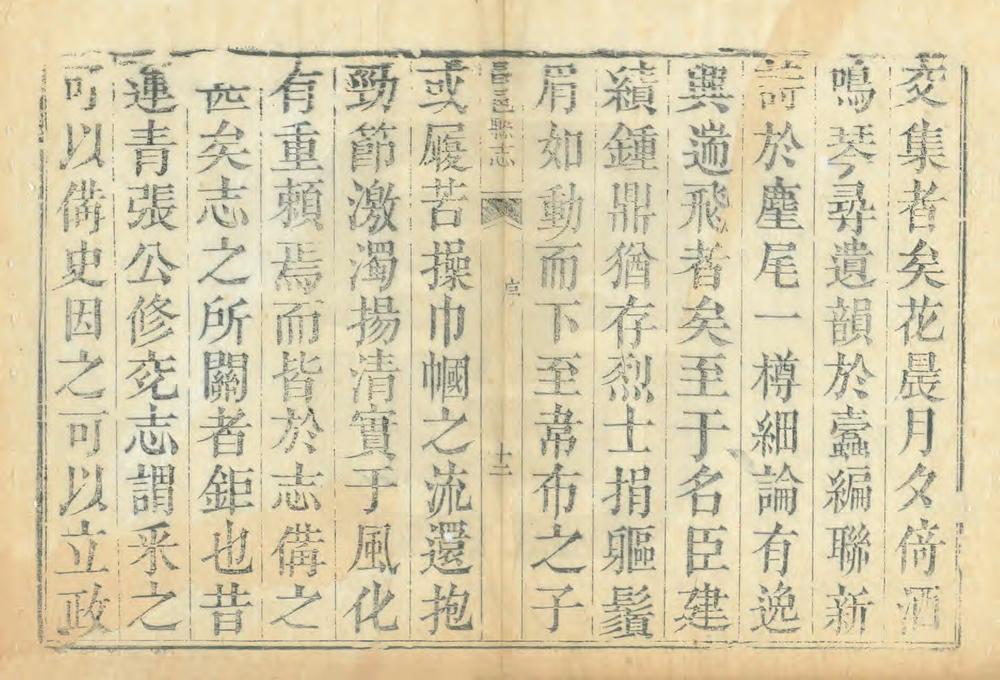 交集者矣花晨月夕倚酒
鳴琴尋遺韻於蠧編聯新
詩於麈尾一樽細論有逸
興遄飛者矣至于名臣建
績鍾鼎猶存烈士捐軀鬚
眉如動而下至韋布之子
昌邑縣志 序 十二
或履苦操巾幗之流還抱
勁節激濁揚清實于風化
有重賴焉而皆於志備之
矣志之所關者鉅也昔
運青張公修兗志謂釆之
可以備史因之可以立政